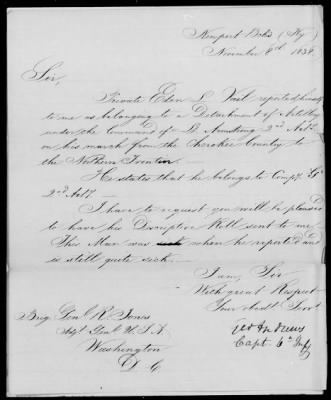 Newport Bks (Ky)
November 9th 1838
Sir,
Private Eben L Vail reported himself
to me as belonging to a Detachment of Artillery
under the command of Lt Armstrong 2nd Arty
on his march from the Cherokee Country to
the Northern Frontier.
He states that he belongs to Compy "G"
2nd Arty.
I have to request you will be pleased
to have his Descriptive Roll sent to me.
This Man was sick when he reported and
is still quite sick.
I am, Sir
With great Respect
Your obdt Servt
Geo Andrews
Capt 6th Infy
Brig Genl R. Jones
Adjt Genl U.S.A
Washington
D C